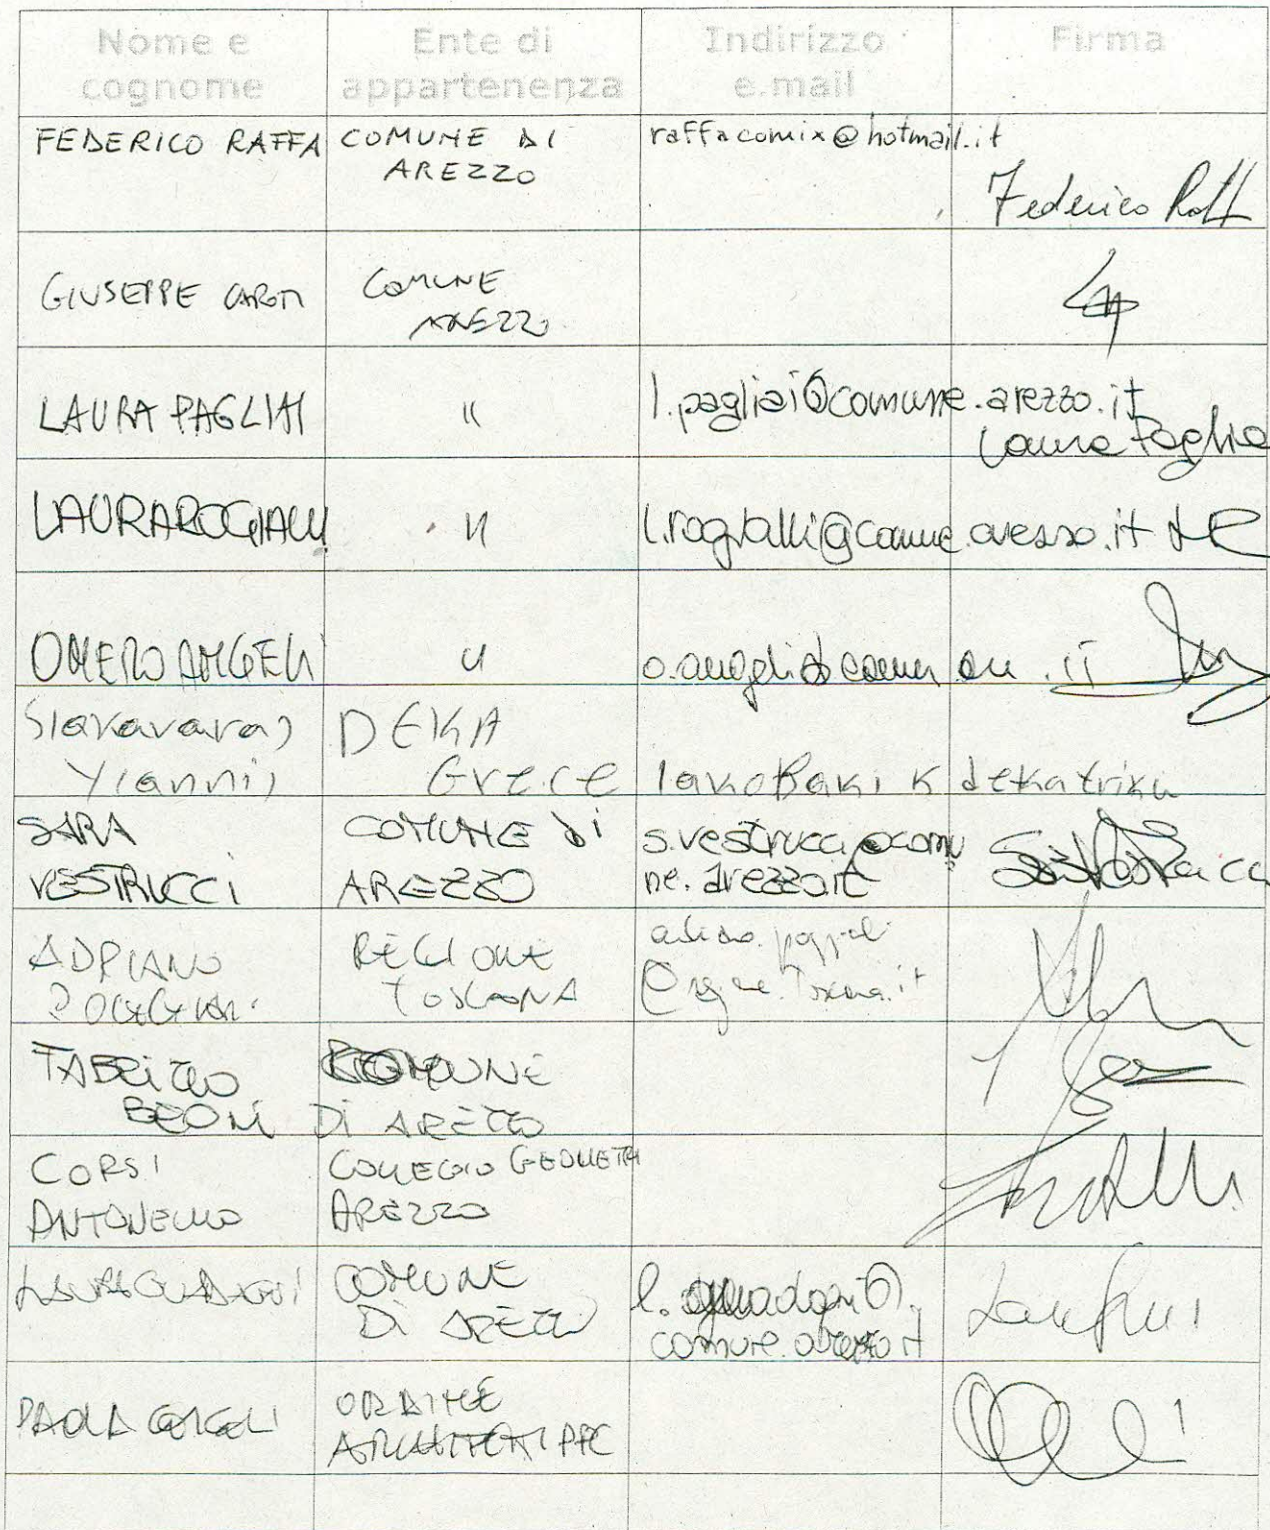 Nome e cognome
Ente di appartenenza
Indirizzo e.mail
Firma
FEDERICO RAFFA
COMUNE DI
AREZZO
raffacomix@hotmail.it
Federico Raff
GIUSEPPE CAROTI
COMUNE
AREZZO
LAURA PAGLIAI
"
l.pagliai@comune.arezzo.it
Laura Paglia
LAURA ROGIALLI
"
l.rogialli@comune.arezzo.it LR
OMERO ANGELI
"
Siakavaras
Yiannis
DEKA
Grece
SARA
VESTRUCCI
COMUNE DI
AREZZO
s.vestrucci@comu
ne.arezzo.it
ADRIANO
POGGIALI
REGIONE
TOSCANA
FABRIZIO
BEONI
COMUNE
DI AREZZO
CORSI
ANTONELLO
COLLEGIO GEOMETRI
AREZZO
LAURA GUADAGNI
COMUNE
DI AREZZO
l.guadagni@
comune.arezzo.it
PAOLA GIGLI
ORDINE
ARCHITETTI PPC